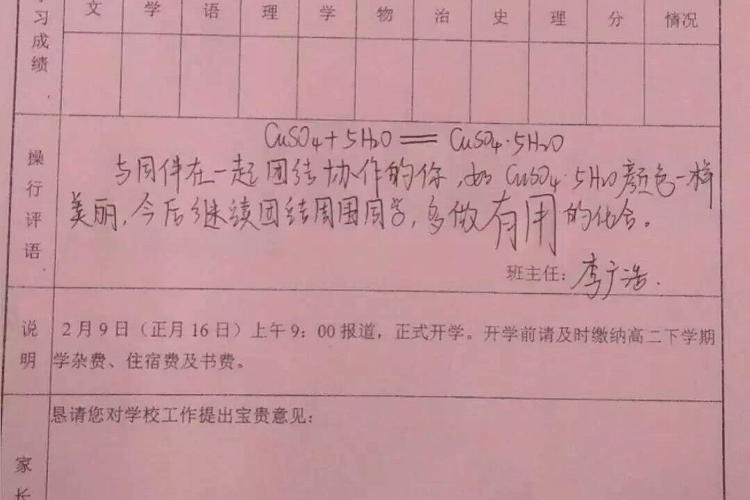 习成绩
文 学 语 理 学 物 治 史 理 分 情况
操行评语
CuSO4+5H2O══CuSO4·5H2O
与同伴在一起团结协作的你,如CuSO4·5H2O颜色一样
美丽,今后继续团结周围同学,多做有用的化合。
班主任:李广浩.
说明
2月9日(正月16日)上午9:00报道,正式开学。开学前请及时缴纳高二下学期
学杂费、住宿费及书费。
恳请您对学校工作提出宝贵意见:
家长